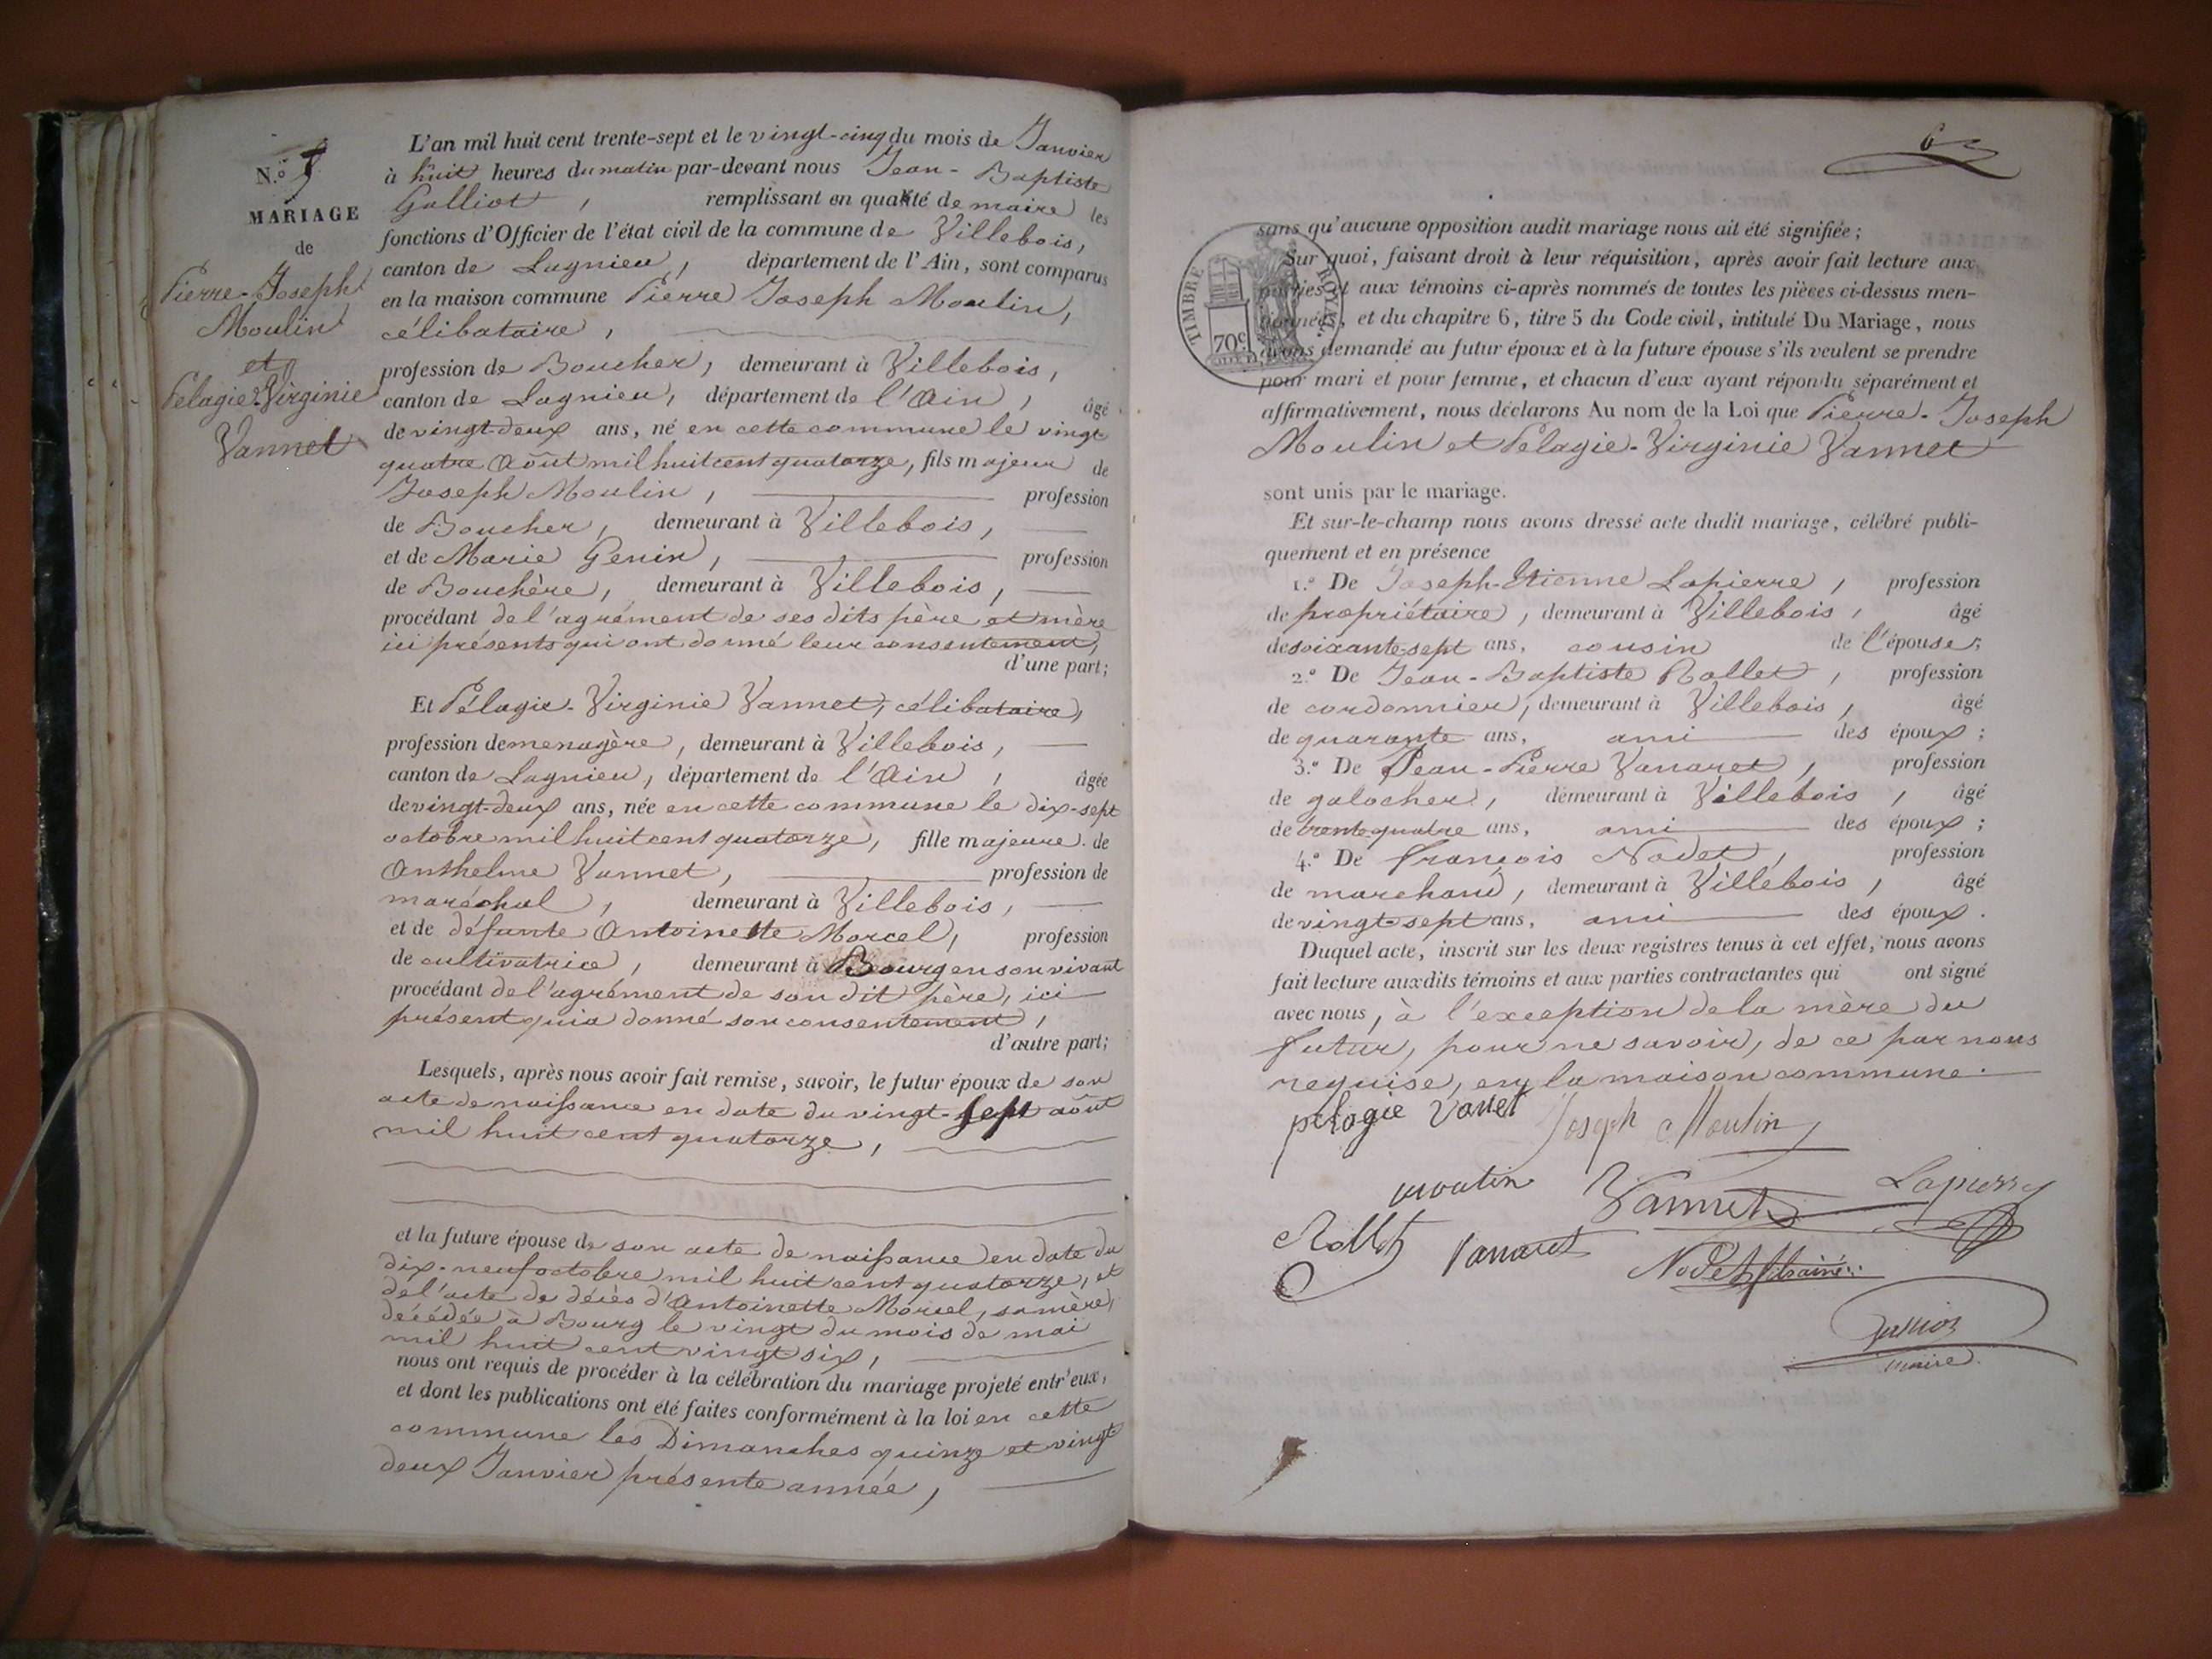 N.º 5
MARIAGE
de
Pierre-Joseph
Moulin
et
Pelagie-Virginie
Vannet
L'an mil huit cent trente-sept et le vingt-cinq du mois de Janvier
à huit heures du matin par-devant nous Jean-Baptiste
Galliot, remplissant en qualité de maire les
fonctions d'Officier de l'état civil de la commune de Villebois,
canton de Lagnieu, département de l'Ain, sont comparus
en la maison commune Pierre Joseph Moulin,
célibataire,
profession de Boucher, demeurant à Villebois,
canton de Lagnieu, département de l'Ain, âgé
de vingt-deux ans, né en cette commune le vingt
quatre Août mil huit cent quatorze, fils majeur de
Joseph Moulin, profession
de Boucher, demeurant à Villebois,
et de Marie Genin, profession
de Bouchère, demeurant à Villebois,
procédant de l'agrément de ses dits père et mère
ici présents qui ont donné leur consentement,
d'une part;
Et Pélagie-Virginie Vannet, célibataire,
profession de menagère, demeurant à Villebois,
canton de Lagnieu, département de l'Ain, âgée
de vingt-deux ans, née en cette commune le dix-sept
octobre mil huit cent quatorze, fille majeure de
Anthelme Vannet, profession de
maréchal, demeurant à Villebois,
et de défunte Antoinette Morcel, profession
de cultivatrice, demeurant à Bourg en son vivant
procédant de l'agrément de son dit père, ici
présent qui a donné son consentement,
d'autre part;
Lesquels, après nous avoir fait remise, savoir, le futur époux de son
acte de naissance en date du vingt-sept août
mil huit cent quatorze,
et la future épouse de son acte de naissance en date du
dix-neuf octobre mil huit cent quatorze, et
de l'acte de décès d'Antoinette Morcel, sa mère,
décédée à Bourg le vingt du mois de mai
mil huit cent vingt six,
nous ont requis de procéder à la célébration du mariage projeté entr'eux,
et dont les publications ont été faites conformément à la loi en cette
commune les Dimanches quinze et vingt
deux Janvier présente année,
6
TIMBRE ROYAL
70c
sans qu'aucune opposition audit mariage nous ait été signifiée;
Sur quoi, faisant droit à leur réquisition, après avoir fait lecture aux
parties et aux témoins ci-après nommés de toutes les pièces ci-dessus men-
tionnées, et du chapitre 6, titre 5 du Code civil, intitulé Du Mariage, nous
avons demandé au futur époux et à la future épouse s'ils veulent se prendre
pour mari et pour femme, et chacun d'eux ayant répondu séparément et
affirmativement, nous déclarons Au nom de la Loi que Pierre-Joseph
Moulin et Pelagie-Virginie Vannet
sont unis par le mariage.
Et sur-le-champ nous avons dressé acte dudit mariage, célébré publi-
quement et en présence
1.º De Joseph-Etienne Lapierre, profession
de propriétaire, demeurant à Villebois, âgé
de soixante-sept ans, cousin de l'épouse;
2.º De Jean-Baptiste Rollet, profession
de cordonnier, demeurant à Villebois, âgé
de quarante ans, ami des époux;
3.º De Jean-Pierre Vanaret, profession
de galocher, demeurant à Villebois, âgé
de trente quatre ans, ami des époux;
4.º De François Nodet, profession
de marchand, demeurant à Villebois, âgé
de vingt-sept ans, ami des époux.
Duquel acte, inscrit sur les deux registres tenus à cet effet, nous avons
fait lecture auxdits témoins et aux parties contractantes qui ont signé
avec nous, à l'exception de la mère du
futur, pour ne savoir, de ce par nous
requise, en la maison commune.
pelagie vanet Joseph Moulin
moulin Vannet Lapierre
Rollet Vanaret Nodet fils ainé
Galliot
maire